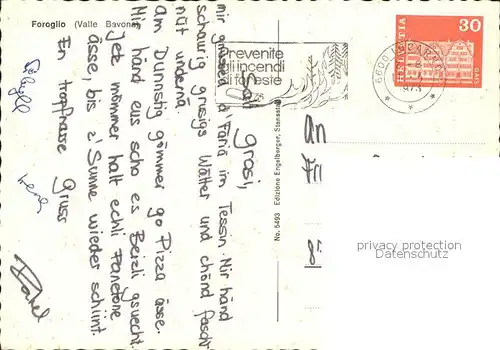 Foroglio (Valle Bavona)
grosi,
mir grüssed d'Fäna im Tessin. Mir händ
schaurig grusigs Wätter und chönd fascht
nüt undernä.
am Dunnstig gömmer go Pizza ässe.
Mir händ eus scho es Beizli gsuecht.
Jetz mömmer halt echli Panetone
ässe, bis z'Sunne wieder schiint.
En tropfnasse Gruss
No. 5493 Edizione Engelberger, Stansstad
Prevenite
gli incendi
di foreste
6600 LOCARNO
HELVETIA
30
GAIS
An
privacy protection
Datenschutz